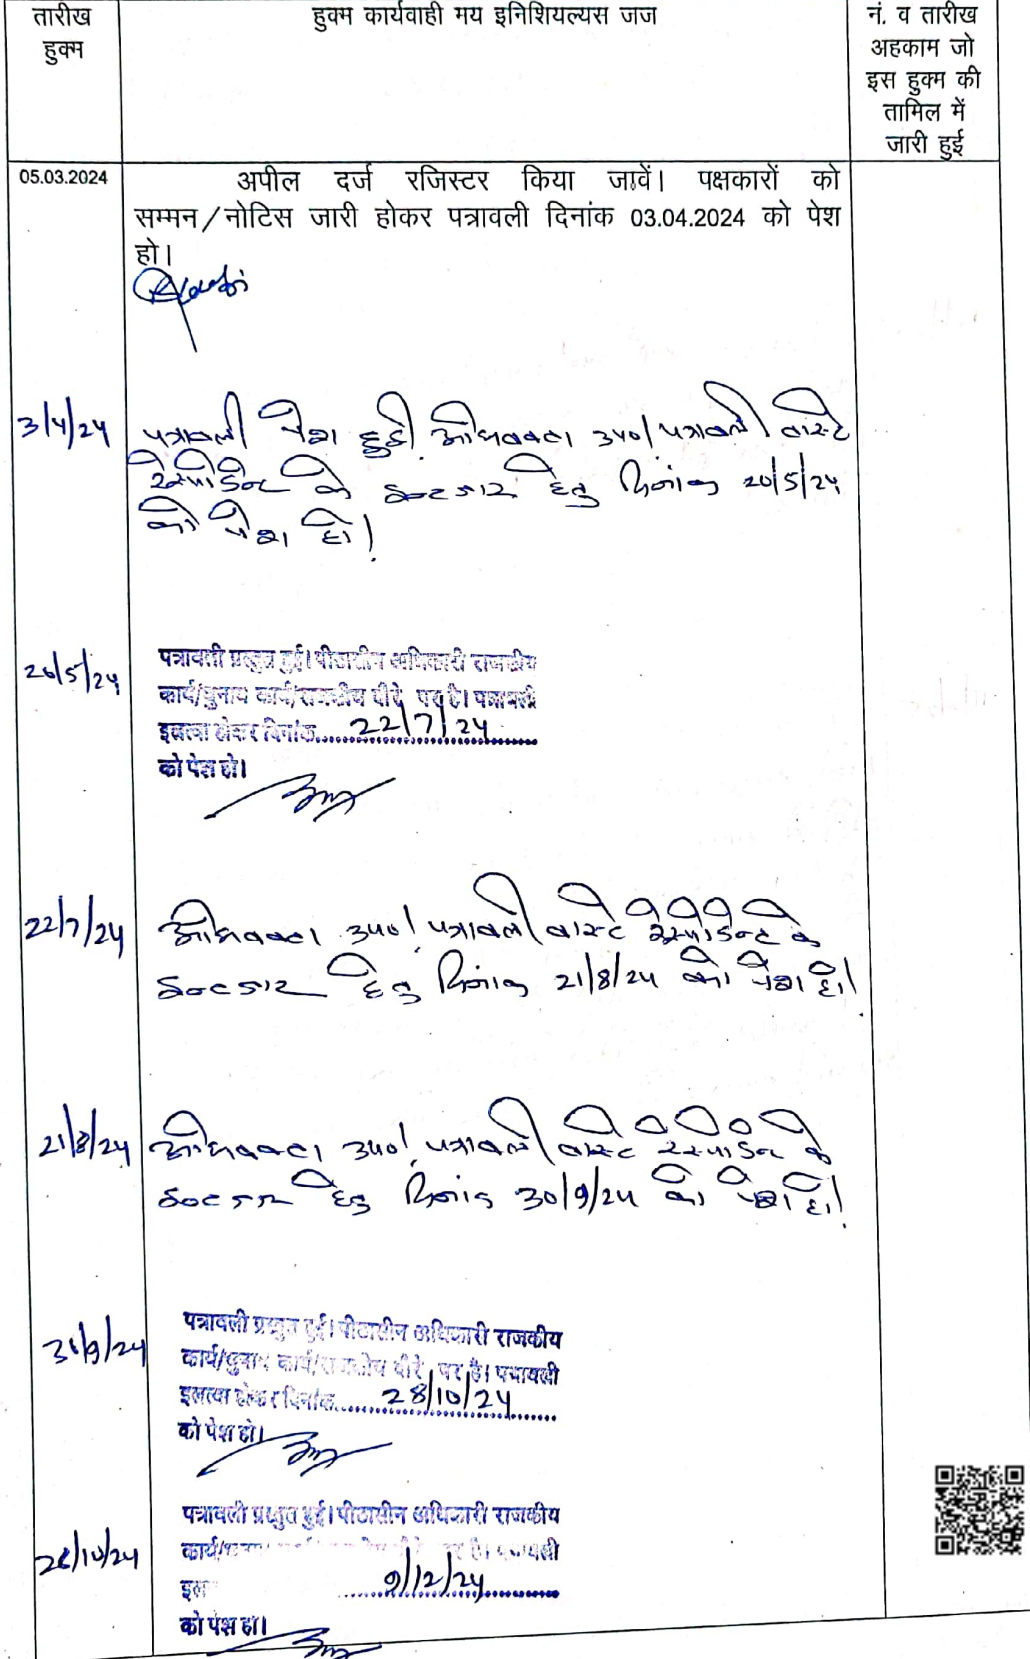 तारीख
हुक्म
हुक्म कार्यवाही मय इनिशियल्यस जज
नं. व तारीख
अहकाम जो
इस हुक्म की
तामिल में
जारी हुई
05.03.2024
अपील दर्ज रजिस्टर किया जावें। पक्षकारों को
सम्मन/नोटिस जारी होकर पत्रावली दिनांक 03.04.2024 को पेश
हो।
3/4/24
पत्रावली पेश हुई। अधिवक्ता उप०। पत्रावली वास्ते
रेस्पोडेन्ट के इन्तजार हेतु दिनांक 20/5/24
को पेश हो।
20/5/24
पत्रावली प्रस्तुत हुई। पीठासीन अधिकारी राजकीय
कार्य/चुनाव कार्य/राजकीय दौरे पर है। पत्रावली
इसल्वा होकर दिनांक 22/7/24
को पेश हो।
22/7/24
अधिवक्ता उप०। पत्रावली वास्ते रेस्पोडेन्ट के
इन्तजार हेतु दिनांक 21/8/24 को पेश हो।
21/8/24
अधिवक्ता उप०। पत्रावली वास्ते रेस्पोडेन्ट के
इन्तजार हेतु दिनांक 30/9/24 को पेश हो।
30/9/24
पत्रावली प्रस्तुत हुई। पीठासीन अधिकारी राजकीय
कार्य/चुनाव कार्य/राजकीय दौरे पर है। पत्रावली
इसल्वा होकर दिनांक 28/10/24
को पेश हो।
28/10/24
पत्रावली प्रस्तुत हुई। पीठासीन अधिकारी राजकीय
कार्य/ पर है। पत्रावली
9/12/24
को पेश हो।